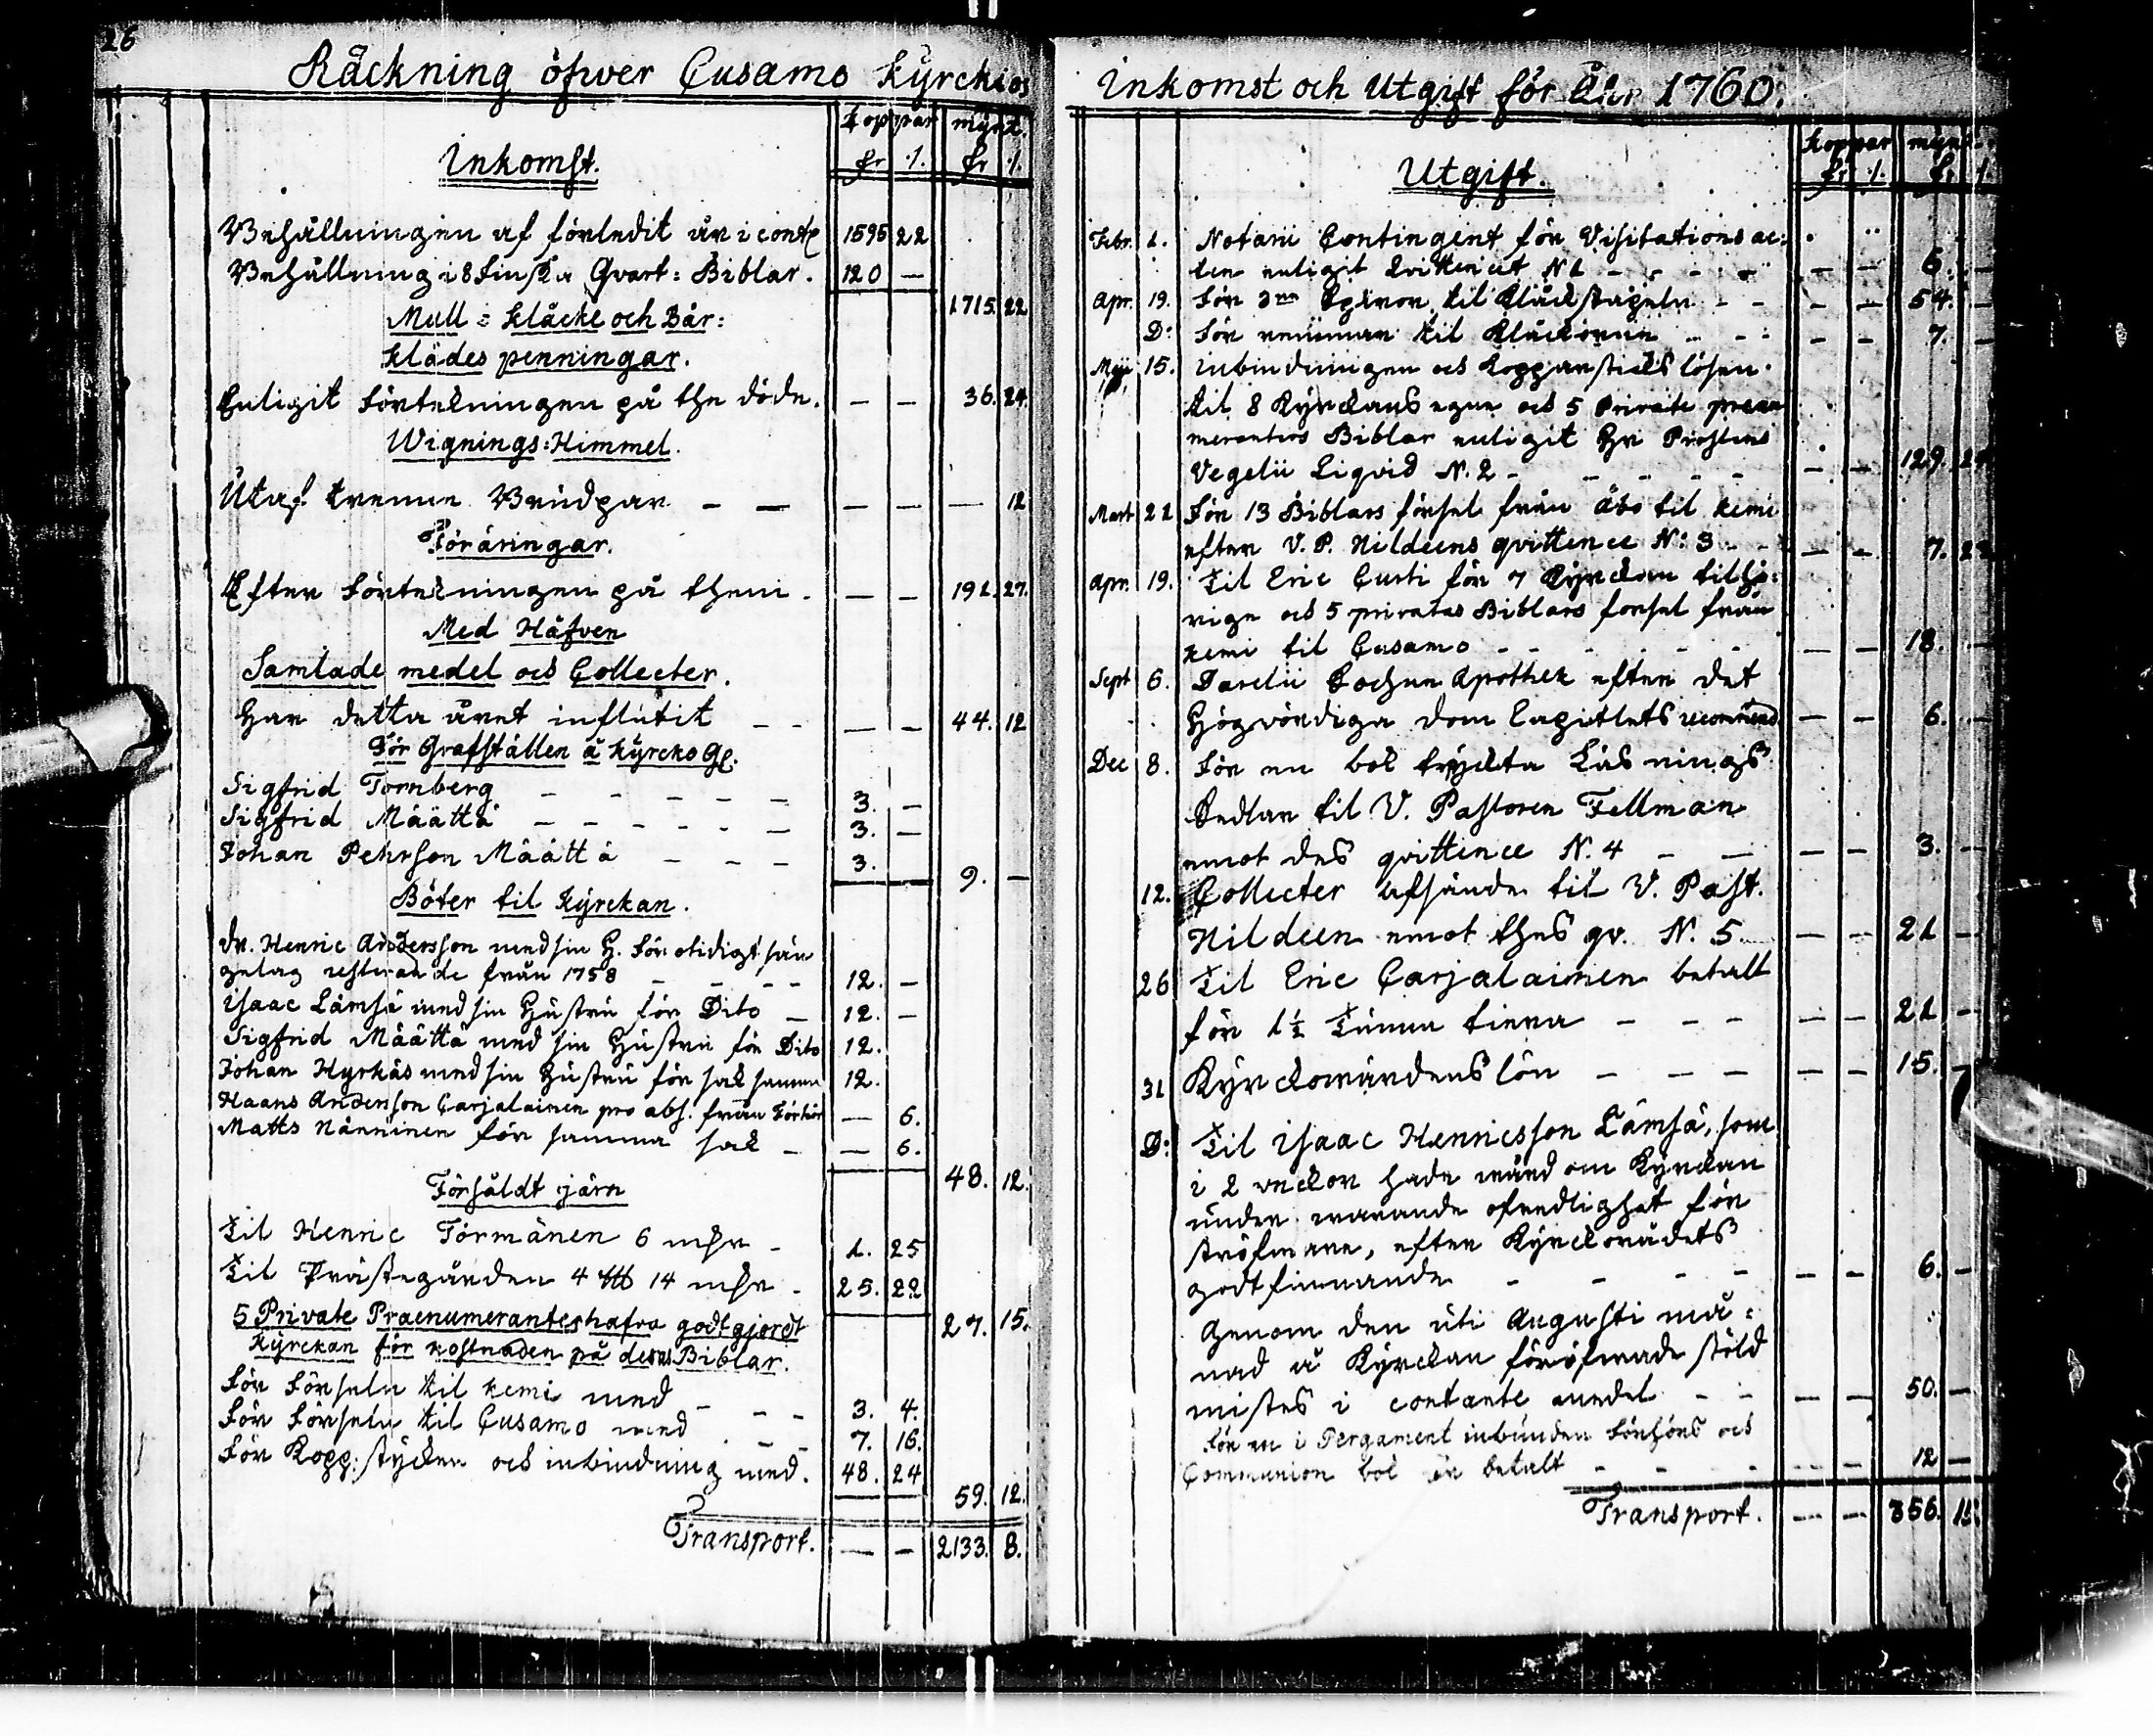 26
Räckning öfwer Cusamo Kyrckios
Koppar mynt.
Inkomst. fr ./. fr ./.
Behållningen af förledit år i cont 1595 22
Behållning i 8 Finska Qvart: Biblar. 120 —
1715. 22
Mull: Kläcke och Bår:
klädes penningar.
Enligit förtekningen på the döde. — — 36. 24.
Wignings: Himmel.
Utaf trenne Brudpar — — — — — 12
Föräringar.
Efter förtekningen på them. — — 191. 27.
Med Håfven
Samlade medel och Collecter.
Har detta året influtit — — — — 44. 12
För Grafställen å Kyrcko G.
Sigfrid Tornberg — — — — — 3. —
Sigfrid Määttä — — — — — — 3. —
Johan Pehrson Määttä — — — 3.
9. —
Böter til Kyrckan.
Dr. Henric Andersson med sin H. för otidigt sän
gelag resterande från 1758 — — — — 12. —
Isaac Lämsä med sin Hustru för Dito — 12. —
Sigfrid Määttä med sin Hustru för Dito 12.
Johan Hyrkäs med sin Hustru för sak samma 12.
Haans Anderson Carjalainen pro abs. från Förhör — 6.
Matts Nänninen för samma sak — — 6.
48. 12.
Försåldt järn
Til Henric Törmänen 6 mkr — 1. 25
Til Prästegården 4 ℔ 14 mkr — 25. 22
27. 15.
5 Private Praenumerantes hafva godtgjordt
Kyrckan för kostnaden på deras Biblar.
För Förseln til Kemi med — — — 3. 4.
För Förseln til Cusamo med — — 7. 16.
För Kopp: stycken och inbindning med. 48. 24
59. 12.
Transport. — — 2133. 8.
Inkomst och Utgift för Åhr 1760.
Koppar mynt
Utgift. fr ./. fr ./.
Febr. 1. Notarii Contingent för Visitations ac-
ten enligit qvittencet N 1 — — — — — 6. —
Apr. 19. För 3ne til Kläckstapeln — — — — 54. —
D: För remmar til Kläckorna — — — — 7. —
Maji 15. Inbindningen och Kopparsticks lösen
til 8 Kyrckans egne och 5 Private prænu
merantes Biblar enligit Hr Prostens
Vegelii Liqvid N. 2 — — — — — — — 129.
Mart 22 För 13 Biblars försel från Åbo til Kemi
efter V. P. Nildeens qvittence N: 3 — — — — 7.
Apr. 19. Til Eric Custi för 7 Kyrckan tilhö:
rige och 5 privatas Biblars forsel från
Kemi til Cusamo — — — — — — — 18. —
Sept 6. Darelii Apothek efter det
Högvördiga Dom Capitlets recommend. — — 6. —
Dec 8. För en bok tryckta Läsnings
Sedlar til V. Pastoren Fellman
emot des qvittence N. 4 — — — — 3. —
12. Collecter afsände til V. Past.
Nildeen emot thes qv. N. 5 — — 21 —
26 Til Eric Carjalainen betalt
för 1½ Tunna tiera — — — — — 21 —
31 Kyrckowärdens lön — — — — — 15. —
D: Til Isaac Henricsson Lämsä, som
i 2 veckor hade wård om Kyrckan
under warande ofredlighet för
ströfware, efter Kyrckorådets
godtfinnande — — — — — — 6. —
Genom den uti Augusti må:
nad å Kyrckan föröfwade stöld
mistes i contante medel — — — — 50. —
För en i Pergament inbunden Förhörs och
Communion bok är betalt — — — — 12 —
Transport. — — 356. 15.